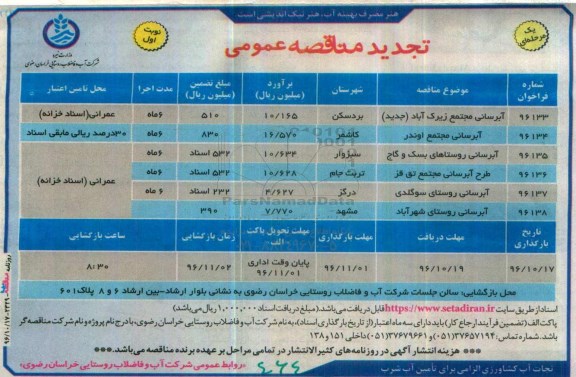 هنر مصرف بهینه آب، هنر نیک اندیشی است.
وزارت نیرو
شرکت آب و فاضلاب روستایی خراسان رضوی
نوبت اول
تجدید مناقصه عمومی
یک مرحله‌ای
شماره فراخوان موضوع مناقصه شهرستان برآورد (میلیون ریال) مبلغ تضمین (میلیون ریال) مدت اجرا محل تامین اعتبار
۹۶۱۳۳ آبرسانی مجتمع زیرک آباد (جدید) بردسکن ۱۰/۱۶۵ ۵۱۰ ۶ماه عمرانی(اسناد خزانه)
۹۶۱۳۴ آبرسانی مجتمع اوندر کاشمر ۱۶/۵۷۰ ۸۳۰ ۶ماه ۳۰درصد ریالی مابقی اسناد
۹۶۱۳۵ آبرسانی روستاهای بسک و کاج سبزوار ۱۰/۶۳۴ ۵۳۲ اسناد ۶ماه
۹۶۱۳۶ طرح آبرسانی مجتمع تق قز تربت جام ۱۰/۶۲۸ ۵۳۲ اسناد ۶ماه عمرانی (اسناد خزانه)
۹۶۱۳۷ آبرسانی روستای سوگلدی درگز ۴/۶۲۷ ۲۳۲ اسناد ۶ ماه
۹۶۱۳۸ آبرسانی روستای شهرآباد مشهد ۷/۷۷۰ ۳۹۰
تاریخ بارگذاری مهلت دریافت مهلت بارگذاری مهلت تحویل پاکت الف زمان بازگشایی ساعت بازگشایی
۹۶/۱۰/۱۷ ۹۶/۱۰/۱۹ ۹۶/۱۱/۰۱ پایان وقت اداری ۹۶/۱۱/۰۱ ۹۶/۱۱/۰۲ ۸:۳۰
محل بازگشایی: سالن جلسات شرکت آب و فاضلاب روستایی خراسان رضوی به نشانی بلوار ارشاد-بین ارشاد ۶ و ۸ پلاک۶۰۱
اسناد از طریق سایت https://www.setadiran.ir قابل دریافت می‌باشد.(مبلغ دریافت اسناد ۱,۰۰۰,۰۰۰ ریال می‌باشد)
پاکت الف (تضمین فرآیند ارجاع کار) باید دارای سه ماه اعتبار (از تاریخ بارگذاری اسناد)، به نام شرکت آب و فاضلاب روستایی خراسان رضوی، با درج نام پروژه و نام شرکت مناقصه گر
باشد. شماره تماس: ۳۷۶۵۷۱۹۴(۰۵۱) و ۳۷۶۷۹۶۶۱(۰۵۱) داخلی ۱۵۱ و ۱۳۸
*** هزینه انتشار آگهی در روزنامه‌های کثیرالانتشار در تمامی مراحل بر عهده برنده مناقصه می‌باشد.***
نجات آب کشاورزی الزامی برای تامین آب شرب
«روابط عمومی شرکت آب و فاضلاب روستایی خراسان رضوی»
ParsNamadData